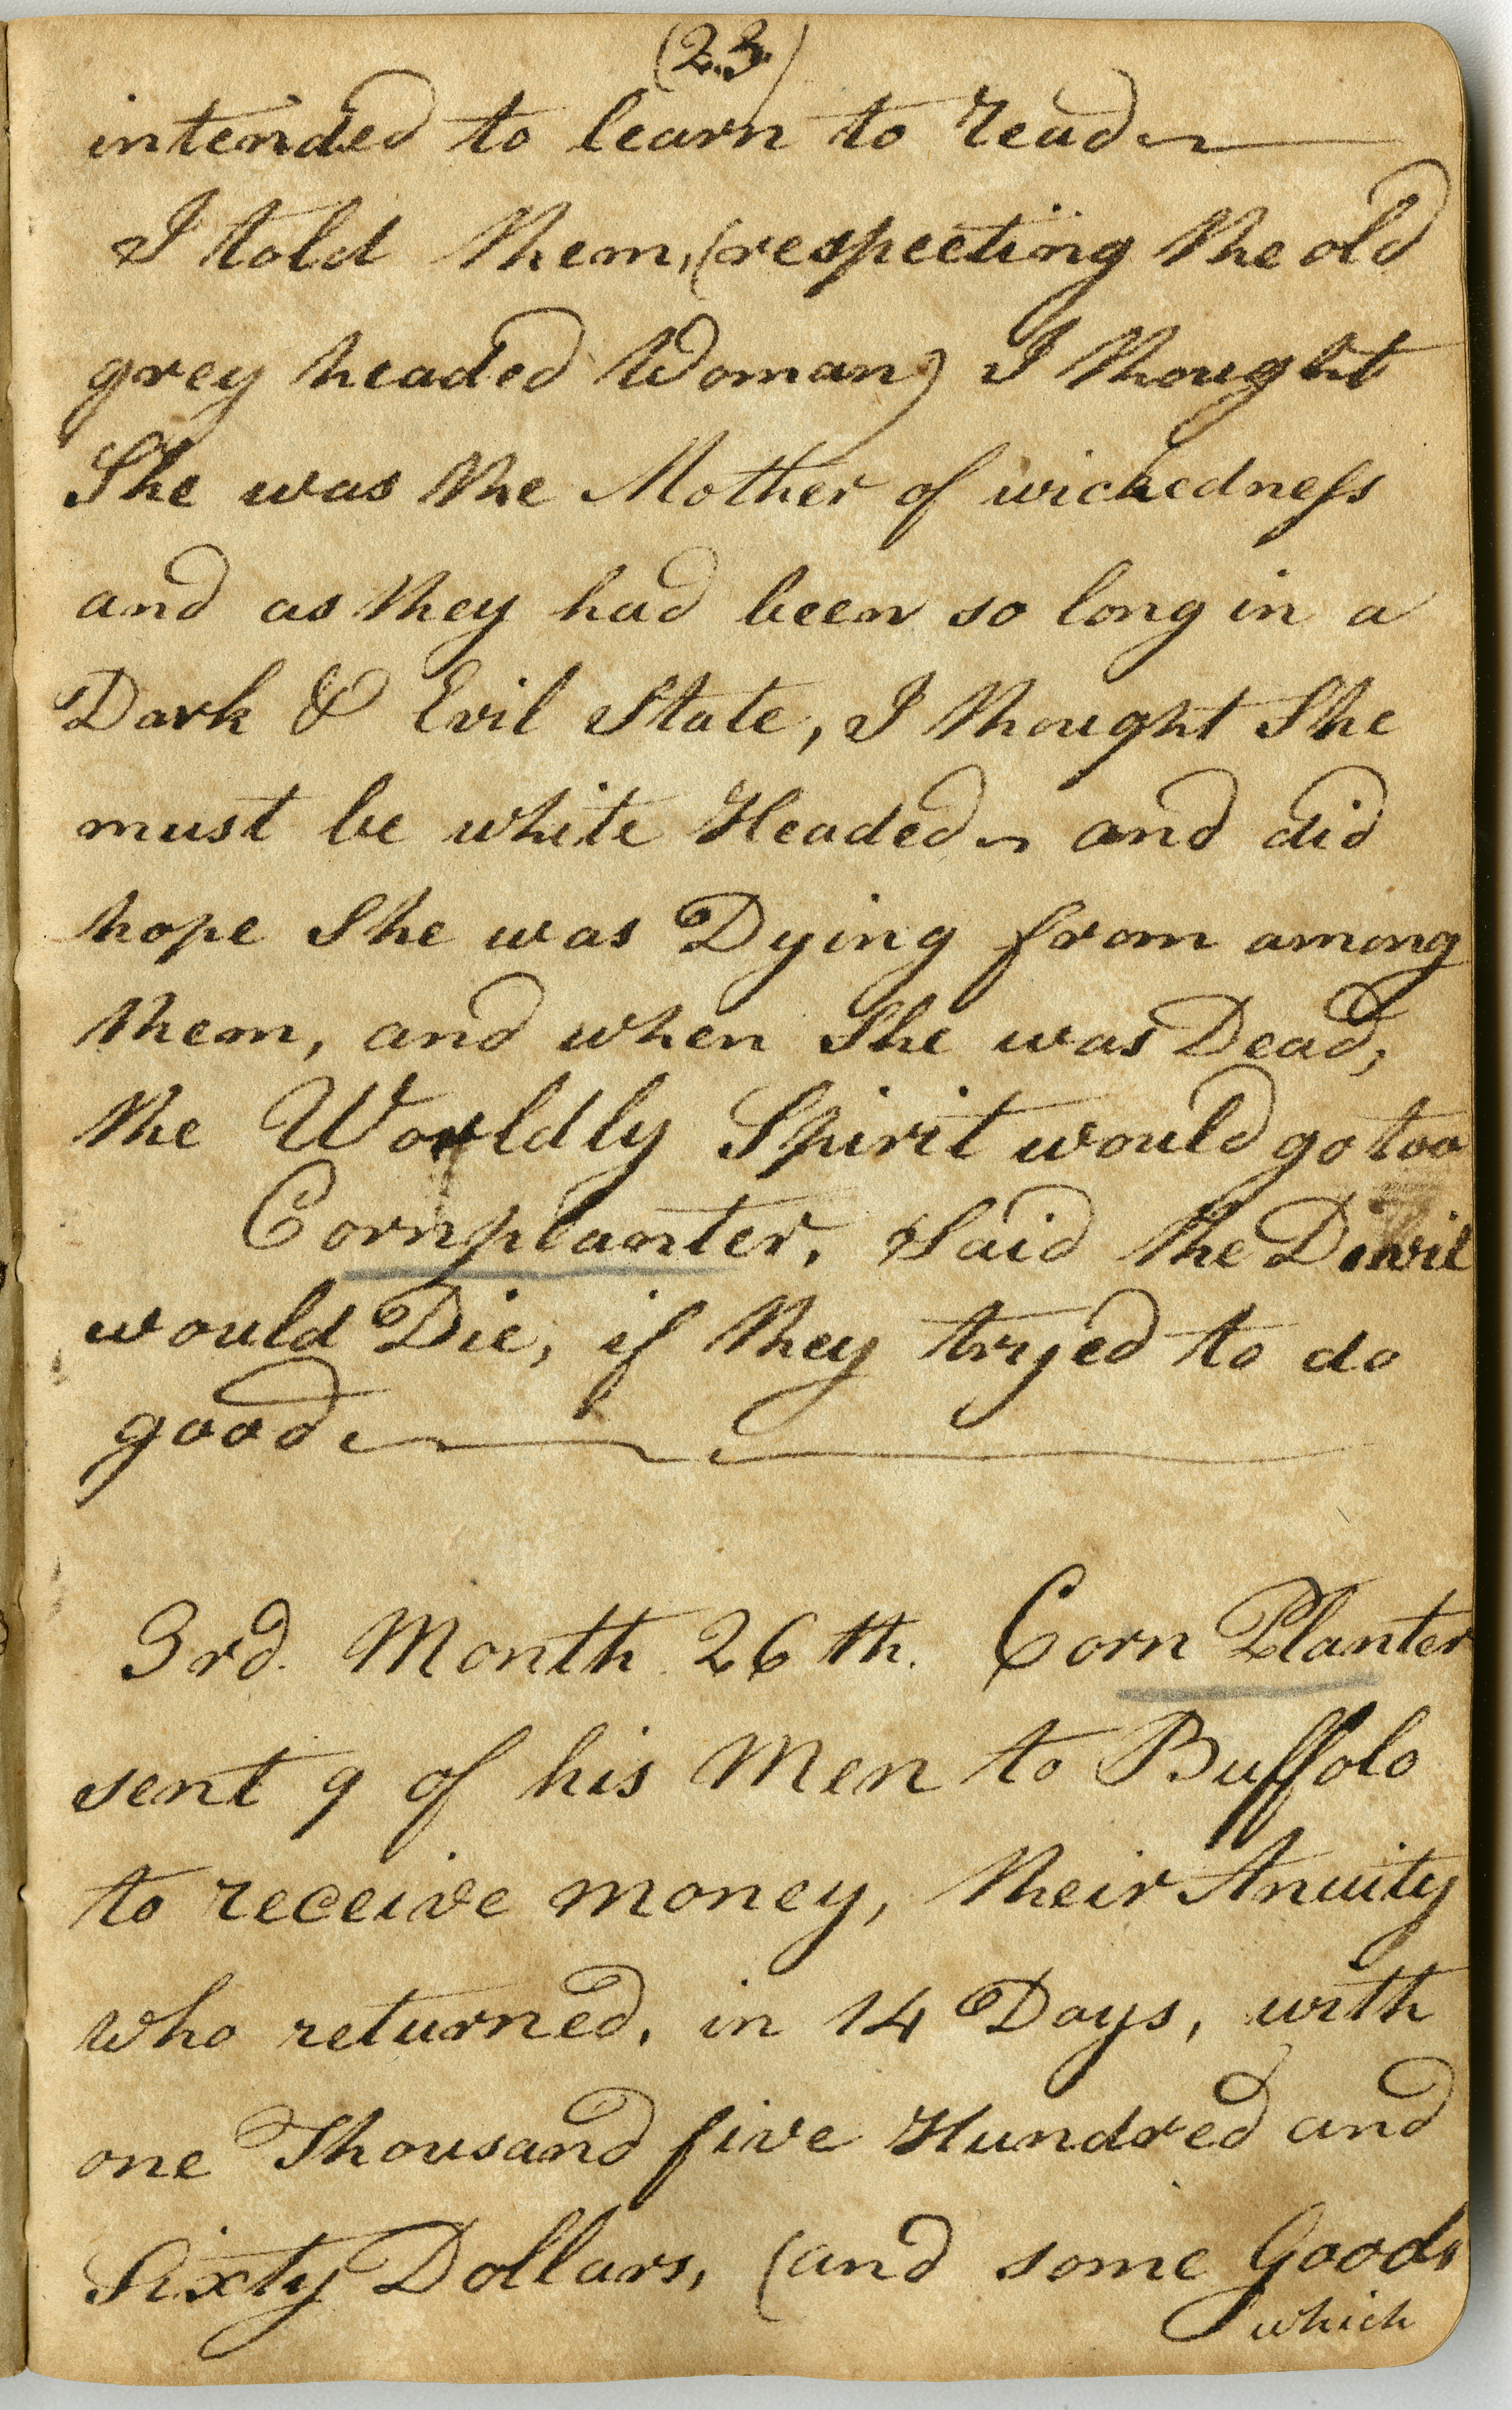 (23)
intended to learn to read
I told them, (respecting the old
grey headed Woman) I thought
She was the Mother of wickedness
and as they had been so long in a
Dark & Evil State, I thought She
must be white Headed and did
hope She was Dying from among
them, and when She was Dead,
the Worldly Spirit would go too
Cornplanter, Said the Devil
would Die, if they tryed to do
good
3rd. Month 26th. Corn Planter
sent 9 of his Men to Buffolo
to receive money, their Anuity
who returned, in 14 Days, with
one Thousand five Hundred and
Sixty Dollars, (and some Goods
which